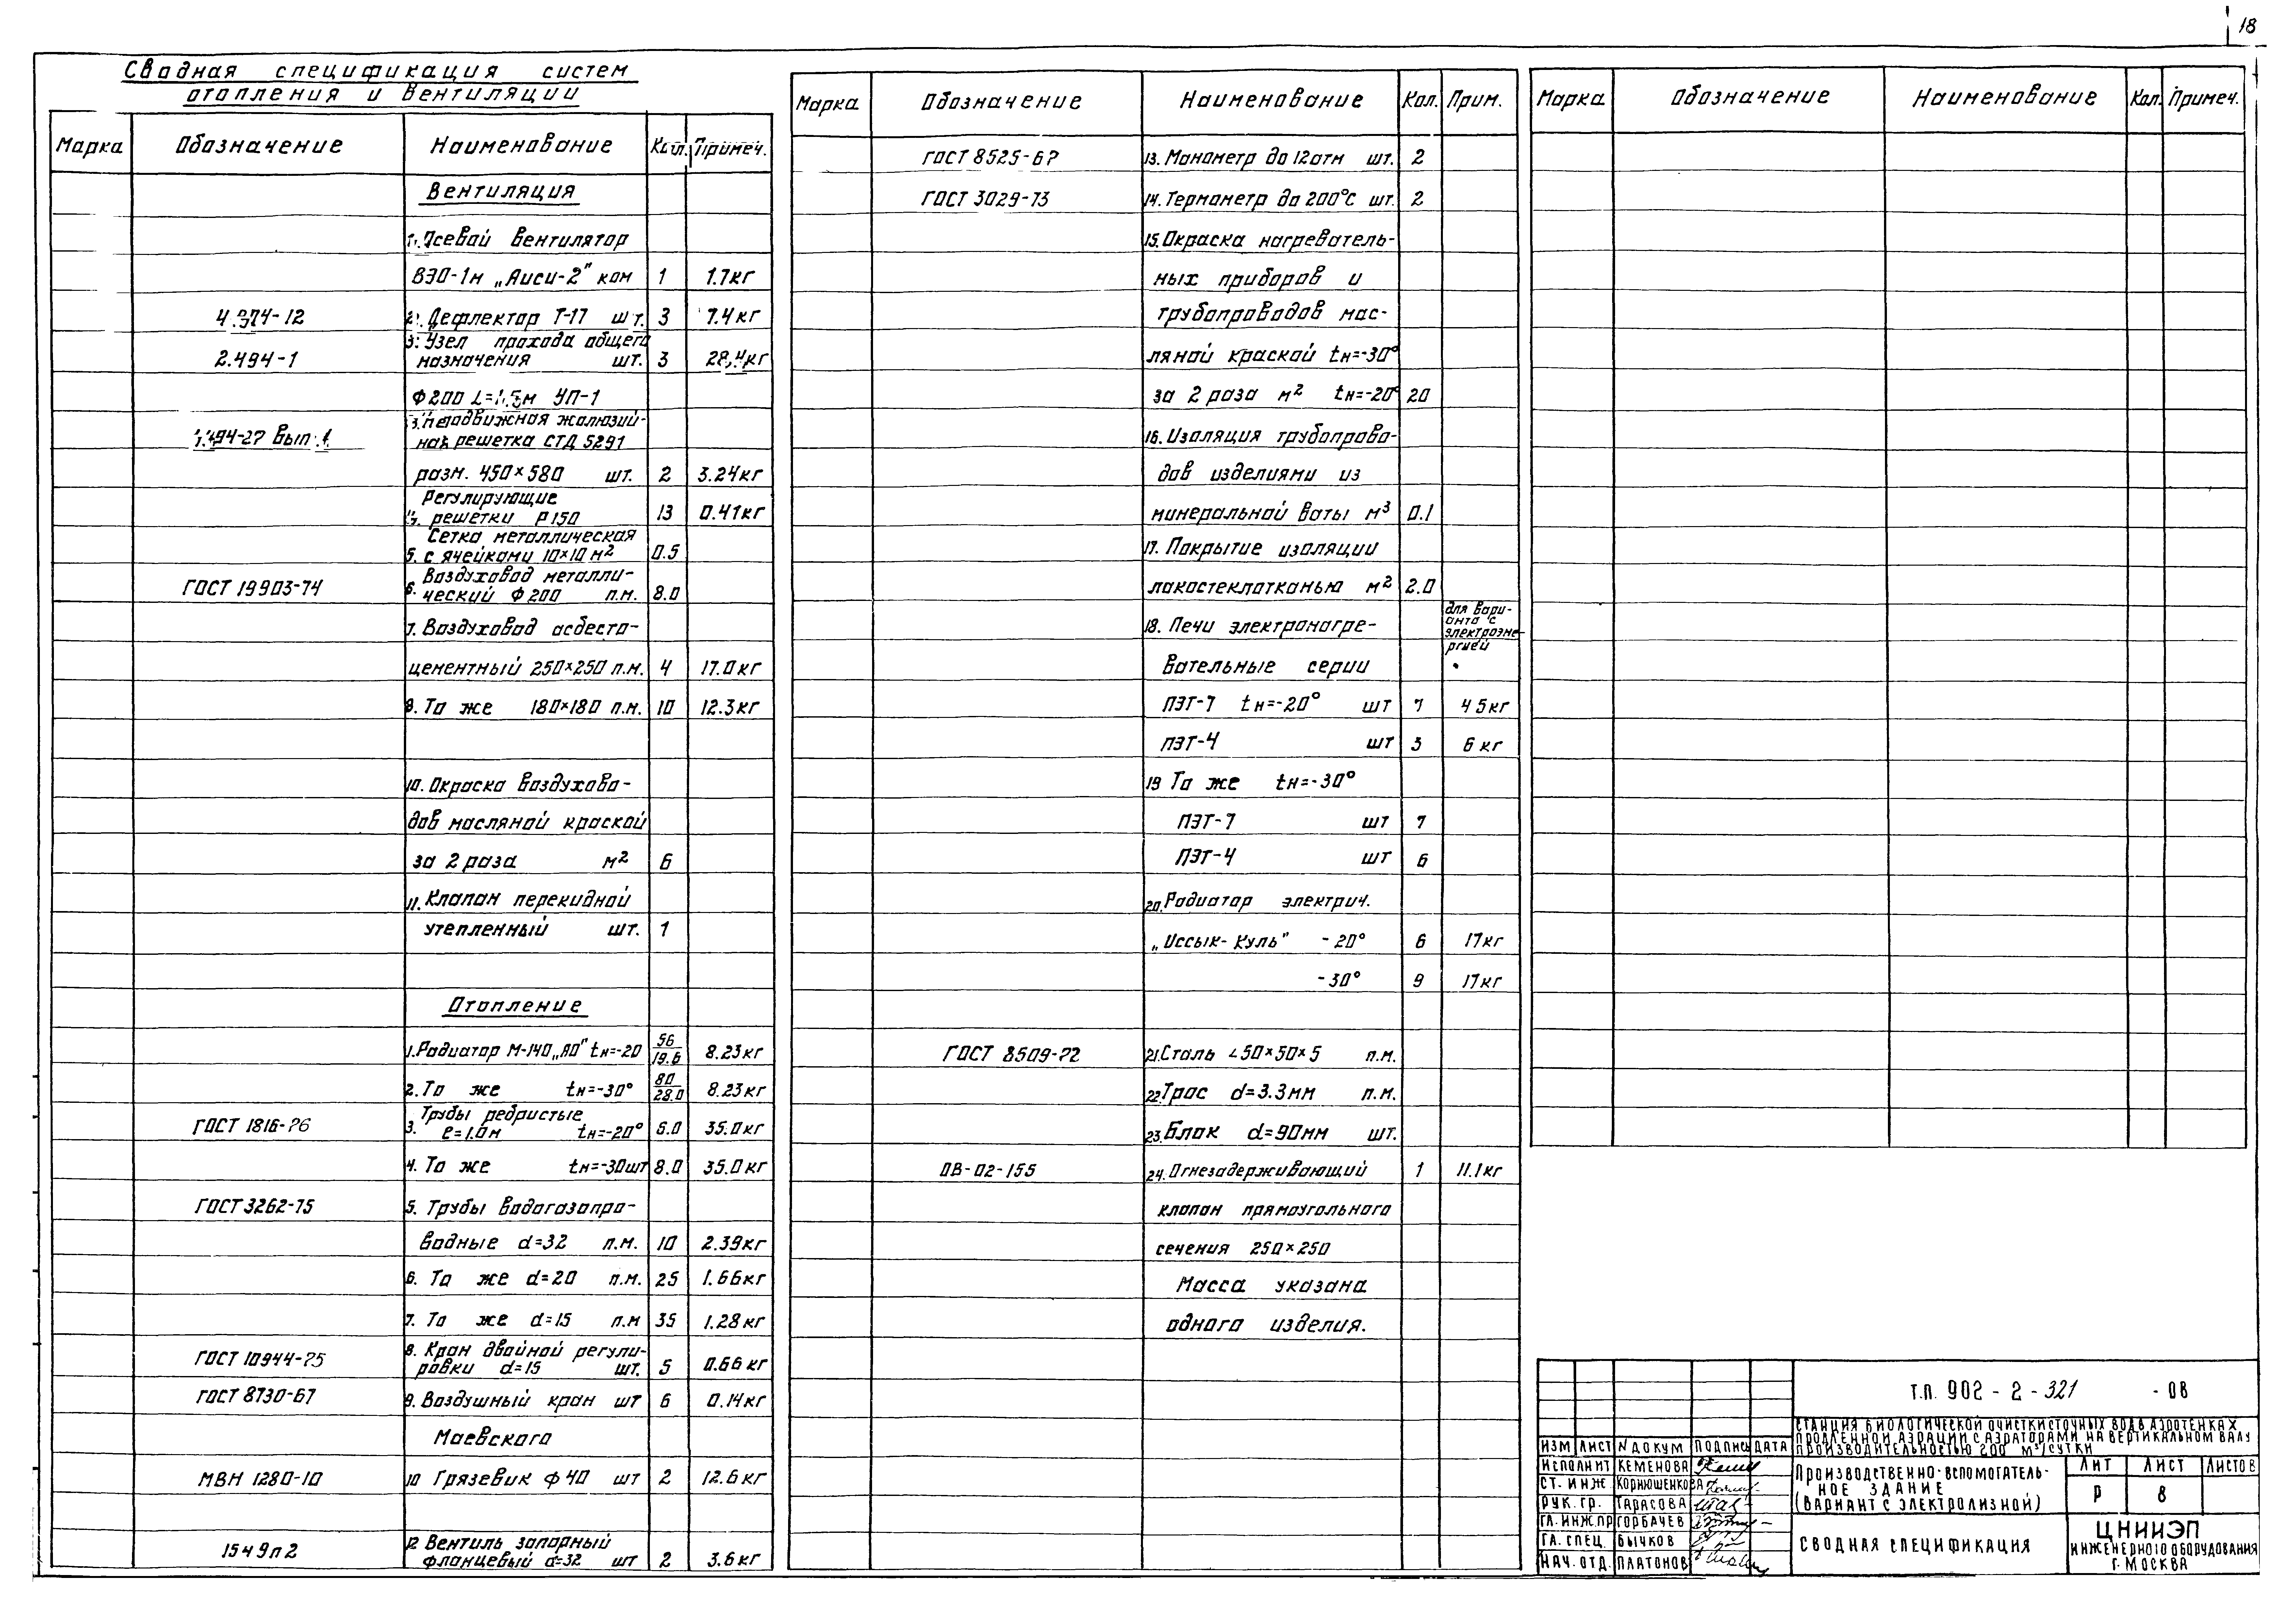 18
Сводная спецификация систем
отопления и вентиляции
Марка Обозначение Наименование Кол. Примеч.
Вентиляция
1. Осевой вентилятор
ВЭО-1м „Лиси-2" ком 1 1.7кг
4.974-12 2. Дефлектор Т-17 шт. 3 7.4кг
3. Узел прохода общего
2.494-1 назначения шт. 3 28,4кг
Ф200 L=1,5м УП-1
3. Неподвижная жалюзий-
1.494-27 Вып.1 ная решетка СТД 5291
разм. 450×580 шт. 2 3.24кг
Регулирующие
4. решетки Р150 13 0.41кг
Сетка металлическая
5. с ячейками 10×10 м² 0.5
Воздуховод металли-
ГОСТ 19903-74 6. ческий Ф200 п.м. 8.0
7. Воздуховод асбесто-
цементный 250×250 п.м. 4 17.0кг
8. То же 180×180 п.м. 10 12.3кг
10. Окраска воздухово-
дов масляной краской
за 2 раза м² 6
11. Клапан перекидной
утепленный шт. 1
Отопление
1. Радиатор М-140„АО" tн=-20 56/19.6 8.23кг
2. То же tн=-30° 80/28.0 8.23кг
Трубы ребристые
ГОСТ 1816-76 3. ℓ=1.0м tн=-20° 6.0 35.0кг
4. То же tн=-30шт 8.0 35.0кг
ГОСТ 3262-75 5. Трубы водогазопро-
водные d=32 п.м. 10 2.39кг
6. То же d=20 п.м. 25 1.66кг
7. То же d=15 п.м 35 1.28кг
8. Кран двойной регули-
ГОСТ 10944-75 ровки d=15 шт. 5 0.66кг
ГОСТ 8730-67 9. Воздушный кран шт 6 0.14кг
Маевского
МВН 1280-10 10 Грязевик ф40 шт 2 12.6кг
12 Вентиль запорный
15ч9п2 фланцевый d=32 шт 2 3.6кг
Марка Обозначение Наименование Кол. Прим.
ГОСТ 8525-67 13. Манометр до 12атм шт. 2
ГОСТ 3029-73 14. Термометр до 200°С шт. 2
15. Окраска нагреватель-
ных приборов и
трубопроводов мас-
ляной краской tн=-30°
за 2 раза м² tн=-20° 20
16. Изоляция трубопрово-
дов изделиями из
минеральной ваты м³ 0.1
17. Покрытие изоляции
лакостеклотканью м² 2.0
18. Печи электронагре- для вари-
анта с
электроэне-
ргией
вательные серии
ПЭТ-7 tн=-20° шт 7 45кг
ПЭТ-4 шт 3 6 кг
19 То же tн=-30°
ПЭТ-7 шт 7
ПЭТ-4 шт 6
20. Радиатор электрич.
„Иссык-Куль" -20° 6 17кг
-30° 9 17кг
ГОСТ 8509-72 21. Сталь ∠50×50×5 п.м.
22. Трос d=3.3мм п.м.
23. Блок d=90мм шт.
ОВ-02-155 24. Огнезадерживающий 1 11.1кг
клапан прямоугольного
сечения 250×250
Масса указана
одного изделия.
Марка Обозначение Наименование Кол. Примеч.
Т.П. 902-2-321 -ОВ
СТАНЦИЯ БИОЛОГИЧЕСКОЙ ОЧИСТКИ СТОЧНЫХ ВОД В АЭРОТЕНКАХ
ПРОДЛЕННОЙ АЭРАЦИИ С АЭРАТОРАМИ НА ВЕРТИКАЛЬНОМ ВАЛУ
ПРОИЗВОДИТЕЛЬНОСТЬЮ 200 м³/СУТКИ
ИЗМ ЛИСТ N ДОКУМ ПОДПИСЬ ДАТА
ИСПОЛНИТ КЕМЕНОВА
СТ. ИНЖ КОРНЮШЕНКОВА
РУК. ГР. ТАРАСОВА
ГЛ. ИНЖ. ПР ГОРБАЧЕВ
ГЛ. СПЕЦ. БЫЧКОВ
НАЧ. ОТД. ПЛАТОНОВ
ПРОИЗВОДСТВЕННО-ВСПОМОГАТЕЛЬ-
НОЕ ЗДАНИЕ
(ВАРИАНТ С ЭЛЕКТРОЛИЗНОЙ)
ЛИТ ЛИСТ ЛИСТОВ
Р 8
СВОДНАЯ СПЕЦИФИКАЦИЯ
ЦНИИЭП
ИНЖЕНЕРНОГО ОБОРУДОВАНИЯ
Г. МОСКВА